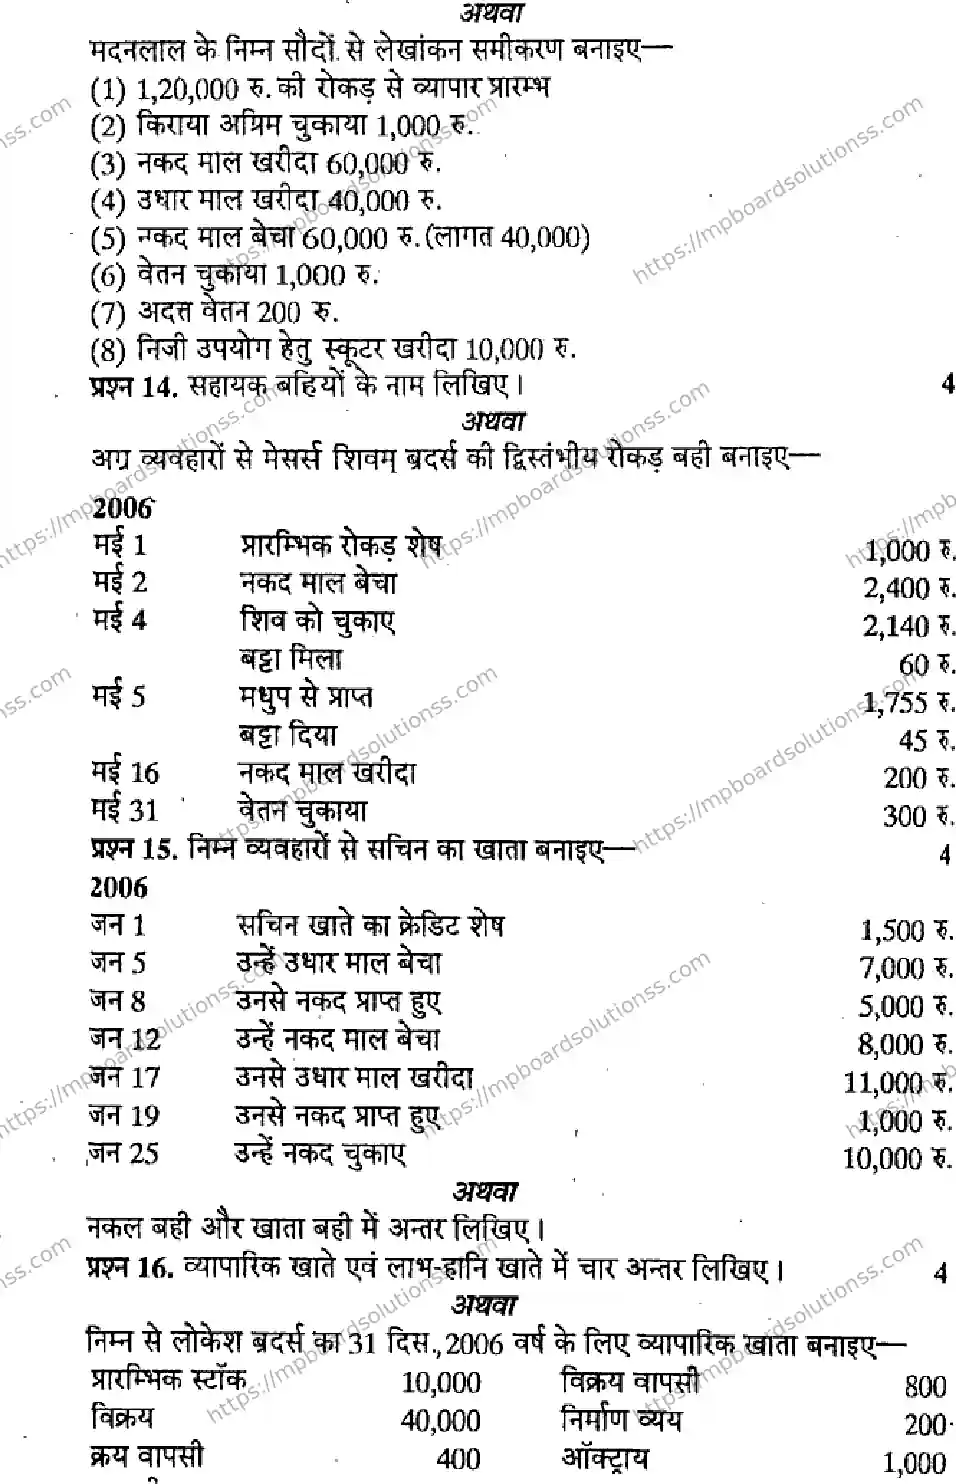 अथवा
मदनलाल के निम्न सौदों से लेखांकन समीकरण बनाइए—
(1) 1,20,000 रु. की रोकड़ से व्यापार प्रारम्भ
(2) किराया अग्रिम चुकाया 1,000 रु.
(3) नकद माल खरीदा 60,000 रु.
(4) उधार माल खरीदा 40,000 रु.
(5) नकद माल बेचा 60,000 रु. (लागत 40,000)
(6) वेतन चुकाया 1,000 रु.
(7) अदत्त वेतन 200 रु.
(8) निजी उपयोग हेतु स्कूटर खरीदा 10,000 रु.
प्रश्न 14. सहायक बहियों के नाम लिखिए। 4
अथवा
अग्र व्यवहारों से मेसर्स शिवम् ब्रदर्स की द्विस्तंभीय रोकड़ बही बनाइए—
2006
मई 1 प्रारम्भिक रोकड़ शेष 1,000 रु.
मई 2 नकद माल बेचा 2,400 रु.
मई 4 शिव को चुकाए 2,140 रु.
बट्टा मिला 60 रु.
मई 5 मधुप से प्राप्त 1,755 रु.
बट्टा दिया 45 रु.
मई 16 नकद माल खरीदा 200 रु.
मई 31 वेतन चुकाया 300 रु.
प्रश्न 15. निम्न व्यवहारों से सचिन का खाता बनाइए— 4
2006
जन 1 सचिन खाते का क्रेडिट शेष 1,500 रु.
जन 5 उन्हें उधार माल बेचा 7,000 रु.
जन 8 उनसे नकद प्राप्त हुए 5,000 रु.
जन 12 उन्हें नकद माल बेचा 8,000 रु.
जन 17 उनसे उधार माल खरीदा 11,000 रु.
जन 19 उनसे नकद प्राप्त हुए 1,000 रु.
जन 25 उन्हें नकद चुकाए 10,000 रु.
अथवा
नकल बही और खाता बही में अन्तर लिखिए।
प्रश्न 16. व्यापारिक खाते एवं लाभ-हानि खाते में चार अन्तर लिखिए। 4
अथवा
निम्न से लोकेश ब्रदर्स का 31 दिस., 2006 वर्ष के लिए व्यापारिक खाता बनाइए—
प्रारम्भिक स्टॉक 10,000 विक्रय वापसी 800
विक्रय 40,000 निर्माण व्यय 200
क्रय वापसी 400 ऑक्ट्राय 1,000
https://mpboardsolutionss.com